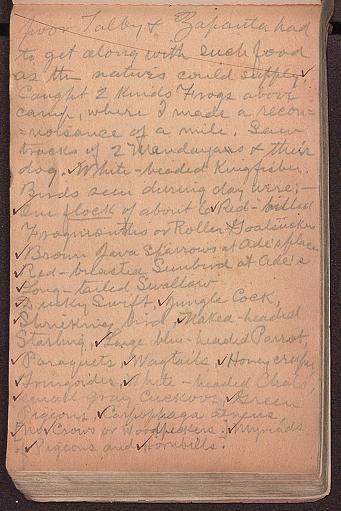 poor Talby & Zapanta had
to get along with such food
as the natives could supply.
Caught 2 kinds Frogs above
camp, where I made a recon=
=noisance of a mile. Saw
tracks of 2 Mandayans & their
dog. White-headed Kingfisher.
Birds seen during day were:—
One flock of about 6 Red-billed
Frogmouths or Roller & Goatsuckers
Brown Java Sparrows at Ade's place
Red-breasted Sunbird at Ade's
Long-tailed Swallow
Dusky Swift, Jungle Cock,
bird, Naked-headed
Starling, Large blue-headed Parrot,
Paraquets, Wagtails, Honey creeper,
White-headed Chats,
small gray Cuckoos, Green
Pigeons, Carpophaga aenea,
No Crows or Woodpeckers. Myriads
of Pigeons and Hornbills.